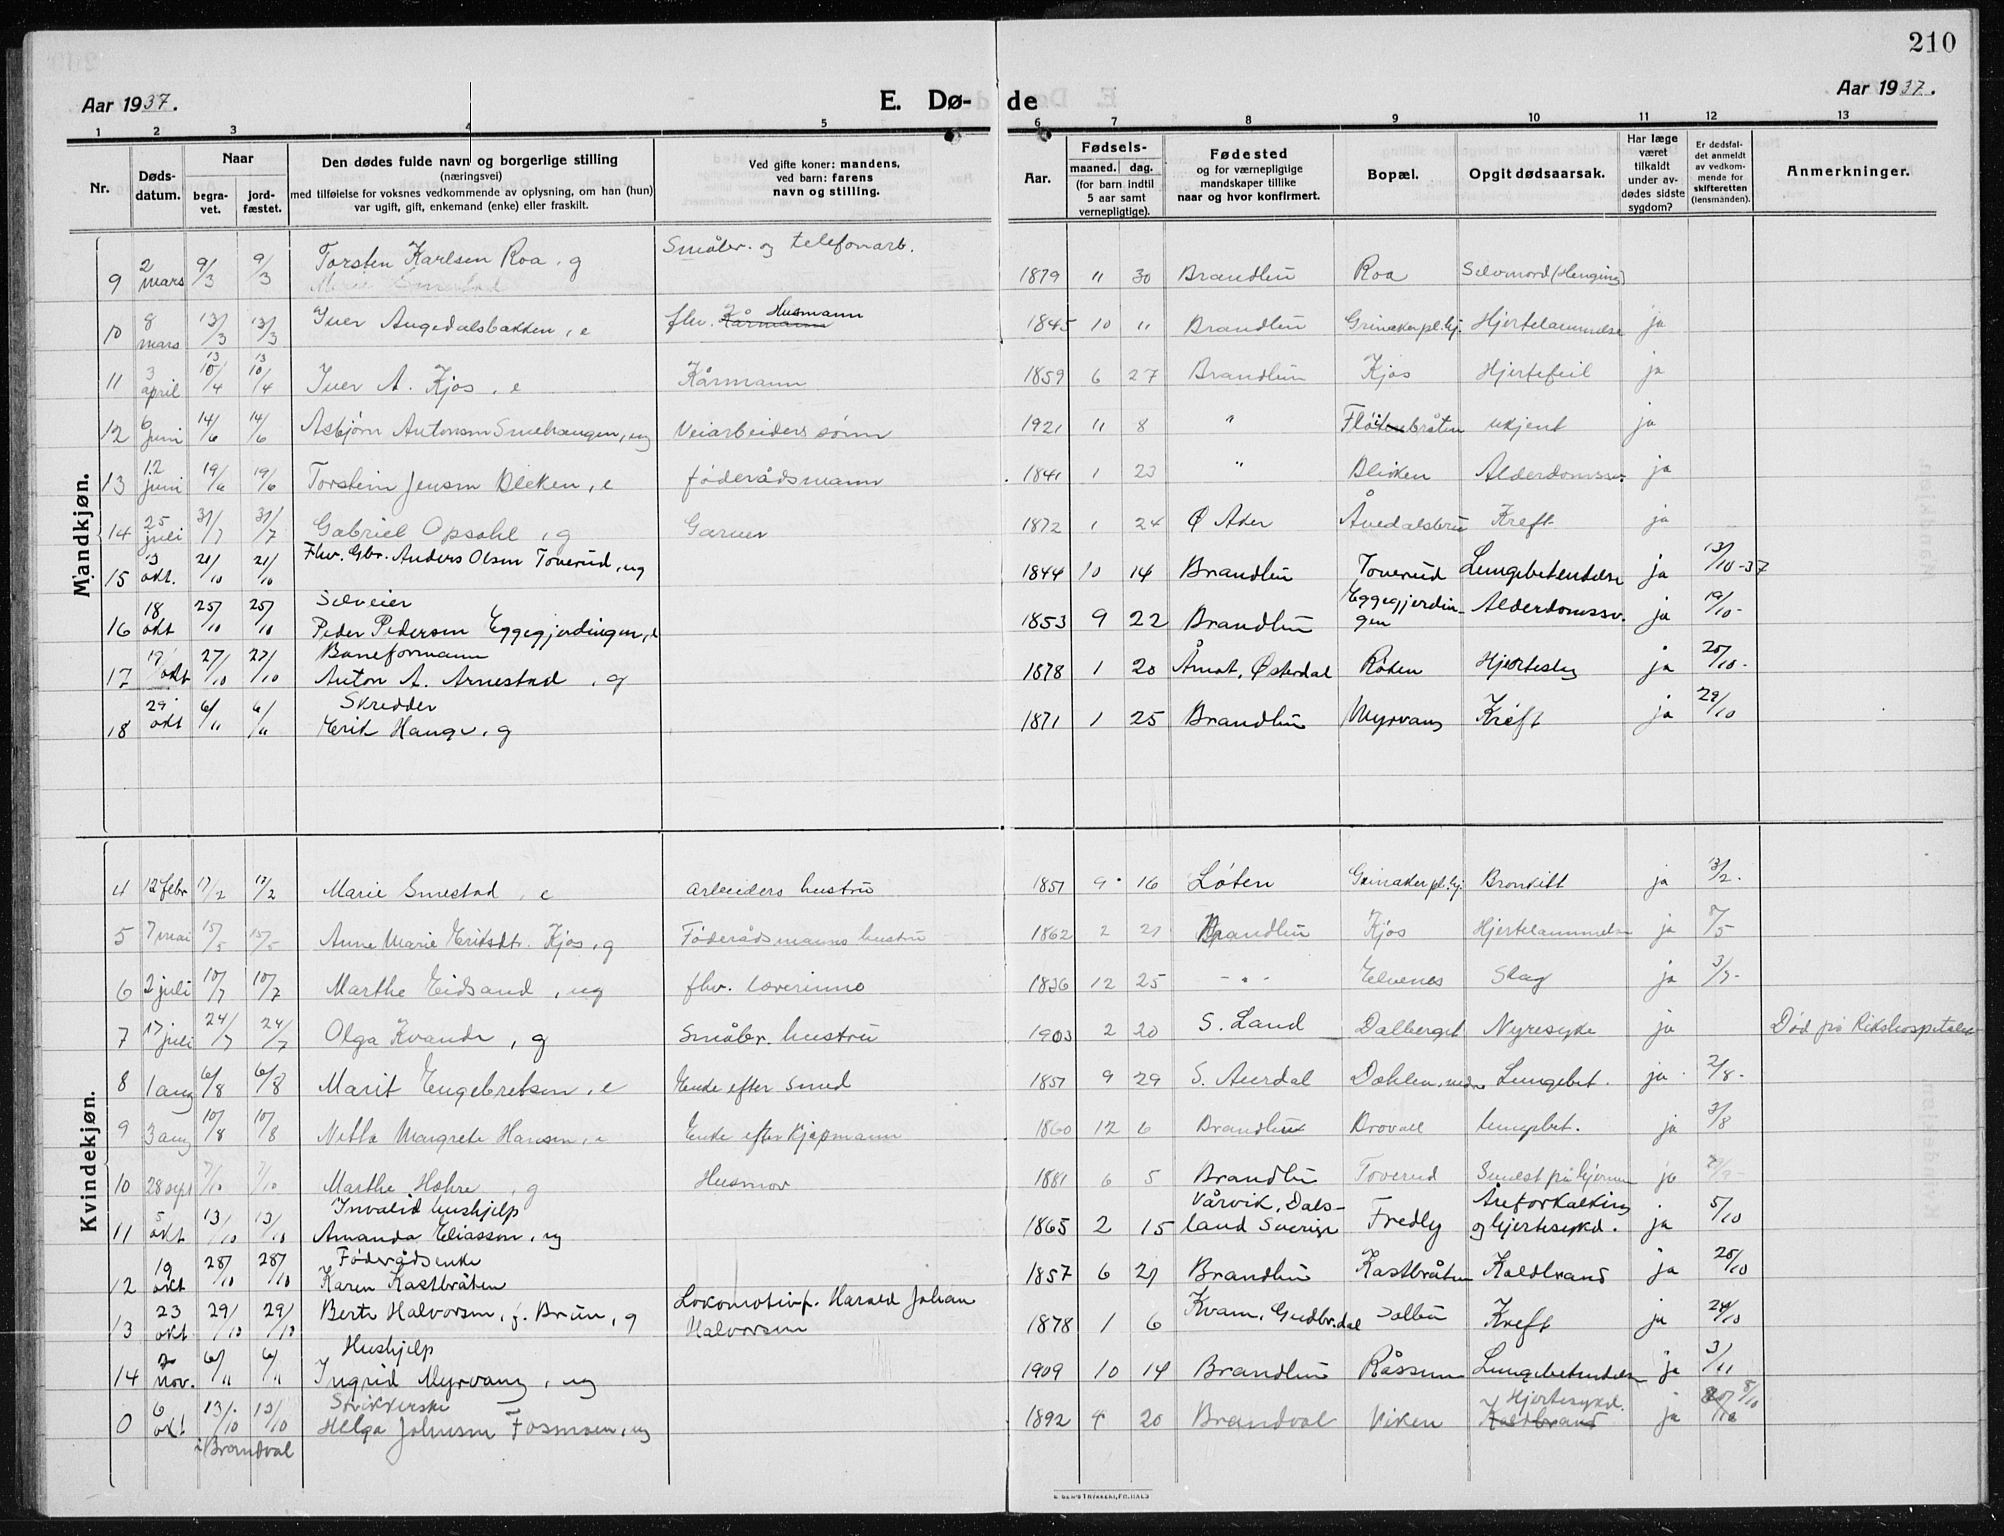 210
Aar 1937.
E. Dø- de
Aar 1937.
1 2 3 4 5 6 7 8 9 10 11 12 13
Nr.
Døds-
datum.
Naar
begra-
vet.
jord-
fæstet.
Den dødes fulde navn og borgerlige stilling
(næringsvei)
med tilføielse for voksnes vedkommende av oplysning, om han (hun)
var ugift, gift, enkemand (enke) eller fraskilt.
Ved gifte koner: mandens,
ved barn: farens
navn og stilling.
Aar.
Fødsels-
maaned. dag.
(for barn indtil
5 aar samt
vernepligtige).
Fødested
og for værnepligtige
mandskaper tillike
naar og hvor konfirmert.
Bopæl.
Opgit dødsaarsak.
Har læge
været
tilkaldt
under av-
dødes sidste
sygdom?
Er dødsfal-
det anmeldt
av vedkom-
mende for
skifteretten
(lensmanden).
Anmerkninger.
Mandkjøn.
9 2 mars 9/3 9/3 Torsten Karlsen Roa, g Småbr. og telefonarb. 1879 11 30 Brandbu Roa Selvmord (Henging)
10 8 mars 13/3 13/3 Iver Augedalsbakken, e fhv. Kårmann Husmann 1845 10 11 Brandbu Grinaker pl.hj. Hjertelammelse ja
11 3 april 10/4 10/4 Iver A. Kjos, e Kårmann 1859 6 27 Brandbu Kjos Hjertefeil ja
12 6 juni 14/6 14/6 Asbjørn Antonsen Smehaugen, ug Veiarbeiders sønn 1921 11 8 " ukjent ja
13 12 juni 19/6 19/6 Torstein Jensen Bleken, e føderådsmann 1841 1 23 " Bleken Alderdomssv. ja
14 25 juli 31/7 31/7 Gabriel Opsahl, g Garver 1872 1 24 Ø Aker Kreft ja
15 13 okt. 21/10 21/10 Fhv. Gbr. Anders Olsen Toverud, ug 1844 10 14 Brandbu Toverud Lungebetendelse ja 13/10-37
16 18 okt 25/10 25/10 Selveier
Peder Pedersen Eggegjerdingen, e 1853 9 22 Brandbu Eggegjerdin-
gen Alderdomssv. ja 19/10-
17 19 okt 27/10 27/10 Baneformann
Anton A. Arnestad, g 1878 1 20 Åmot, Østerdal Røken Hjerteslag ja 20/10-
18 29 okt 6/11 6/11 Skredder
Erik Hauge, g 1871 1 25 Brandbu Myrvang Kreft ja 29/10
Kvindekjøn.
4 12 febr 17/2 17/2 Marie Smestad, e Arbeiders hustru 1851 9 16 Løten Grinaker pl.hj. Bronkitt ja 13/2-
5 7 mai 15/5 15/5 Anne Marie Eriksdtr. Kjos, g Føderådsmanns hustru 1862 2 21 Brandbu Kjos Hjertelammelse ja 8/5
6 2 juli 10/7 10/7 Marthe Eidsand, ug fhv. lærerinne 1836 12 25 - " - Elvenes Slag ja 3/7-
7 17 juli 24/7 24/7 Olga Kvande, g Småbr. hustru 1903 2 20 S. Land Dalberget Nyresyke ja Død på Rikshospitalet
8 1 aug 6/8 6/8 Marit Engebretsen, e Enke efter Smed 1851 9 29 S. Aurdal Dæhlen, nedre Lungebet. ja 2/8-
9 3 aug 10/8 10/8 Netta Margrete Hansen, e Enke efter Kjøpmann 1860 12 6 Brandbu Brovoll Lungebet. ja 3/8
10 28 sept 7/10 7/10 Marthe Hohre, g Husmor 1881 6 5 Brandbu Toverud ja
11 5 okt 13/10 13/10 Invalid hushjelp
Amanda Eliasson, ug 1865 2 15 Vårvik, Dals-
land Sverige Fredly Åreforkalking
og hjertesykd. ja 5/10
12 19 okt 28/10 28/10 Føderådsenke
Karen Kastbråten 1857 6 21 Brandbu Kastbråten Koldbrand ja 20/10
13 23 okt 29/10 29/10 Berte Halvorsen, f. Bruu, g Lokomotivf. Harald Johan
Halvorsen 1878 1 6 Kvam, Gudbr.dal Solbu Kreft ja 24/10
14 2 nov. 6/11 6/11 Hushjelp
Ingrid Myrvang, ug 1909 10 14 Brandbu Råssum Lungebetendelse ja 3/11
0 6 okt 13/10 13/10 Strikkerske
Helga Johnsen Fosmoen, ug 1892 4 20 Brandval Viken Hjertesykd.
Koldbrand ja 8/10
i Brandval